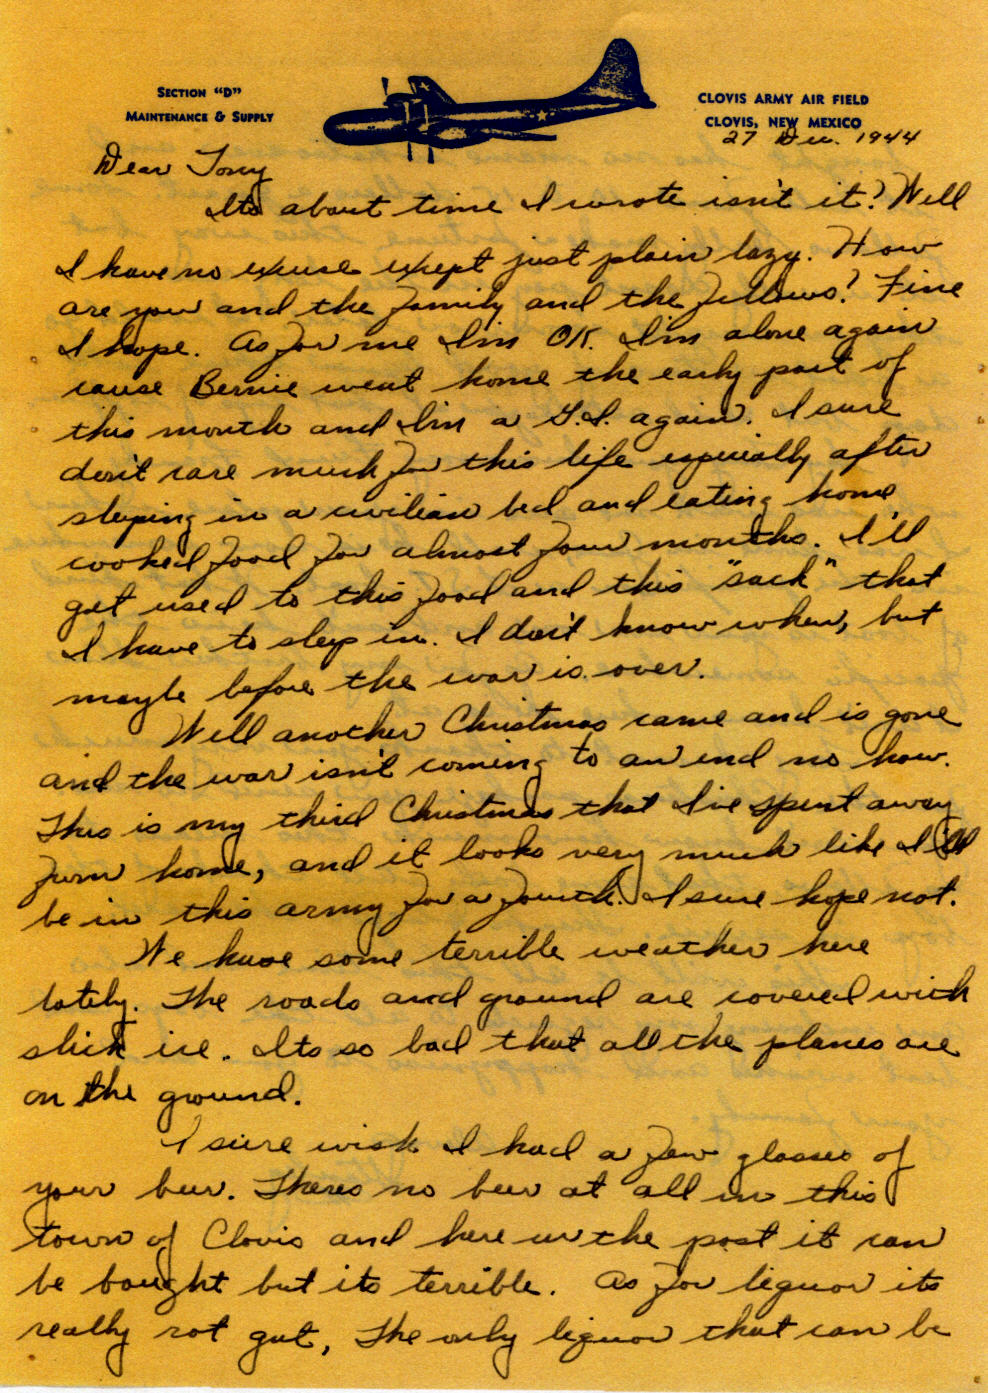 SECTION "D"
MAINTENANCE & SUPPLY
CLOVIS ARMY AIR FIELD
CLOVIS, NEW MEXICO
27 Dec. 1944
Dear Tony
Its about time I wrote isn't it? Well
I have no excuse except just plain lazy. How
are you and the family and the fellows? Fine
I hope. As for me I'm OK. I'm alone again
cause Bernie went home the early part of
this month and I'm a G.I. again. I sure
don't care much for this life especially after
sleeping in a civilian bed and eating home
cooked food for almost four months. I'll
get used to this food and this "sack" that
I have to sleep in. I don't know when, but
maybe before the war is over.
Well another Christmas came and is gone
and the war isn't coming to an end no how.
This is my third Christmas that I've spent away
from home, and it looks very much like I'll
be in this army for a fourth. I sure hope not.
We have some terrible weather here
lately. The roads and ground are covered with
slick ice. Its so bad that all the planes are
on the ground.
I sure wish I had a few glasses of
your beer. Theres no beer at all in this
town of Clovis and here in the post it can
be bought but its terrible. As for liquor its
really rot gut, The only liquor that can be